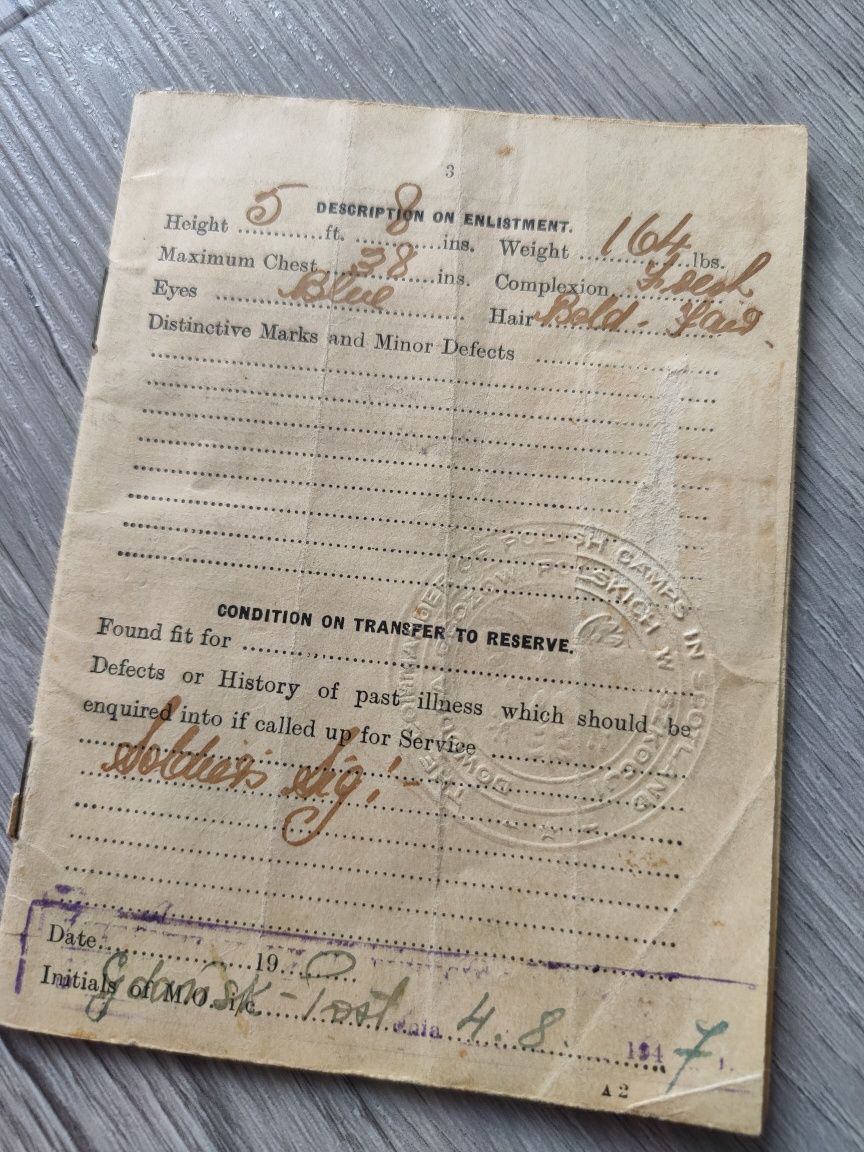 3
DESCRIPTION ON ENLISTMENT.
Height 5 ft. 8 ins. Weight 164 lbs.
Maximum Chest 38 ins. Complexion Fresh
Eyes Blue Hair Bald - Fair.
Distinctive Marks and Minor Defects
CONDITION ON TRANSFER TO RESERVE.
Found fit for
Defects or History of past illness which should be
enquired into if called up for Service
Soldier's Sig:-
THE COMMANDER OF POLISH CAMPS IN SCOTLAND
POLSKICH W SZKOCJI
Date 19
Initials of M.O. i/c
Gdańsk - Port dnia 4. 8. 1947 r.
A 2